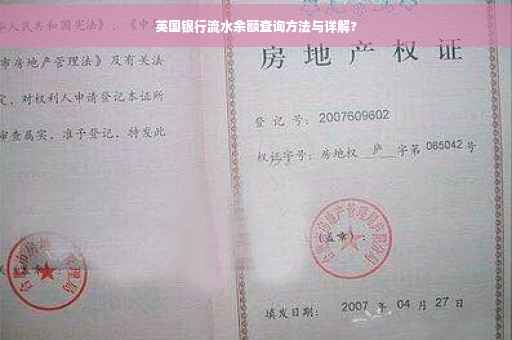 英国银行流水余额查询方法与详解?
华人民共和国宪法》、《中
市房地产管理法》及有关法
定，对权利人申请登记本证所
审查属实，准予登记，特发此
房地产权证
登记号：2007609602
权证字号：房地权 庐 字第 085042 号
(盖章)：
填发日期： 2007 年 04 月 27 日